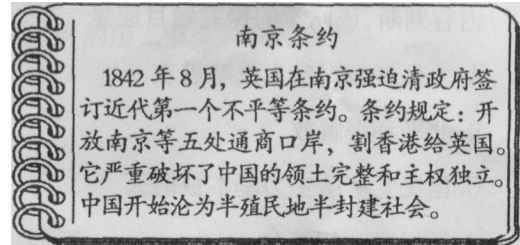 南京条约
1842年8月，英国在南京强迫清政府签
订近代第一个不平等条约。条约规定：开
放南京等五处通商口岸，割香港给英国。
它严重破坏了中国的领土完整和主权独立。
中国开始沦为半殖民地半封建社会。